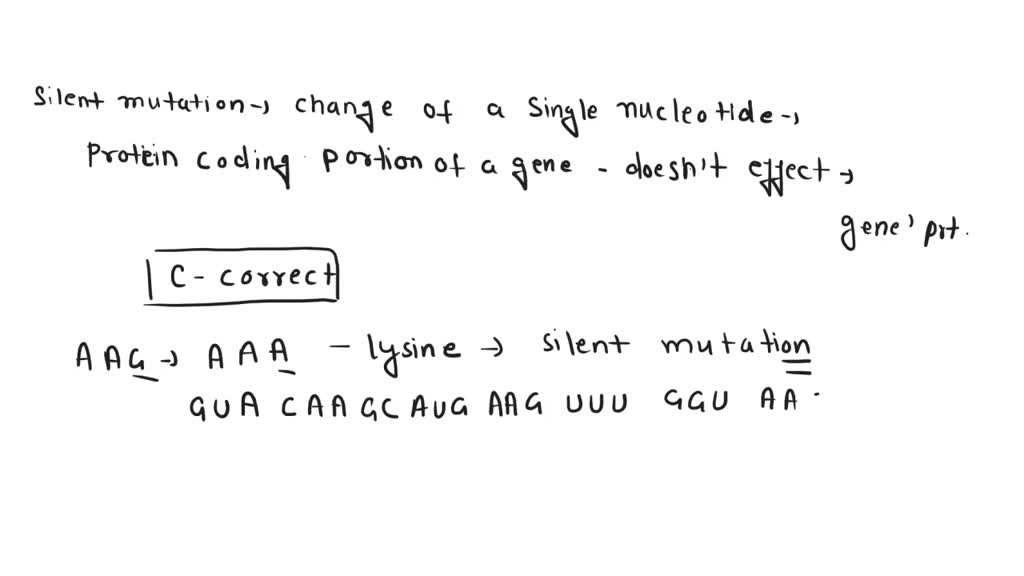 Silent mutation → change of a single nucleotide →
Protein coding portion of a gene - doesn't effect →
gene' prt.
C - correct
AAG → AAA - lysine → silent mutation
GUA CAA GC AUG AAG UUU GGU AA.